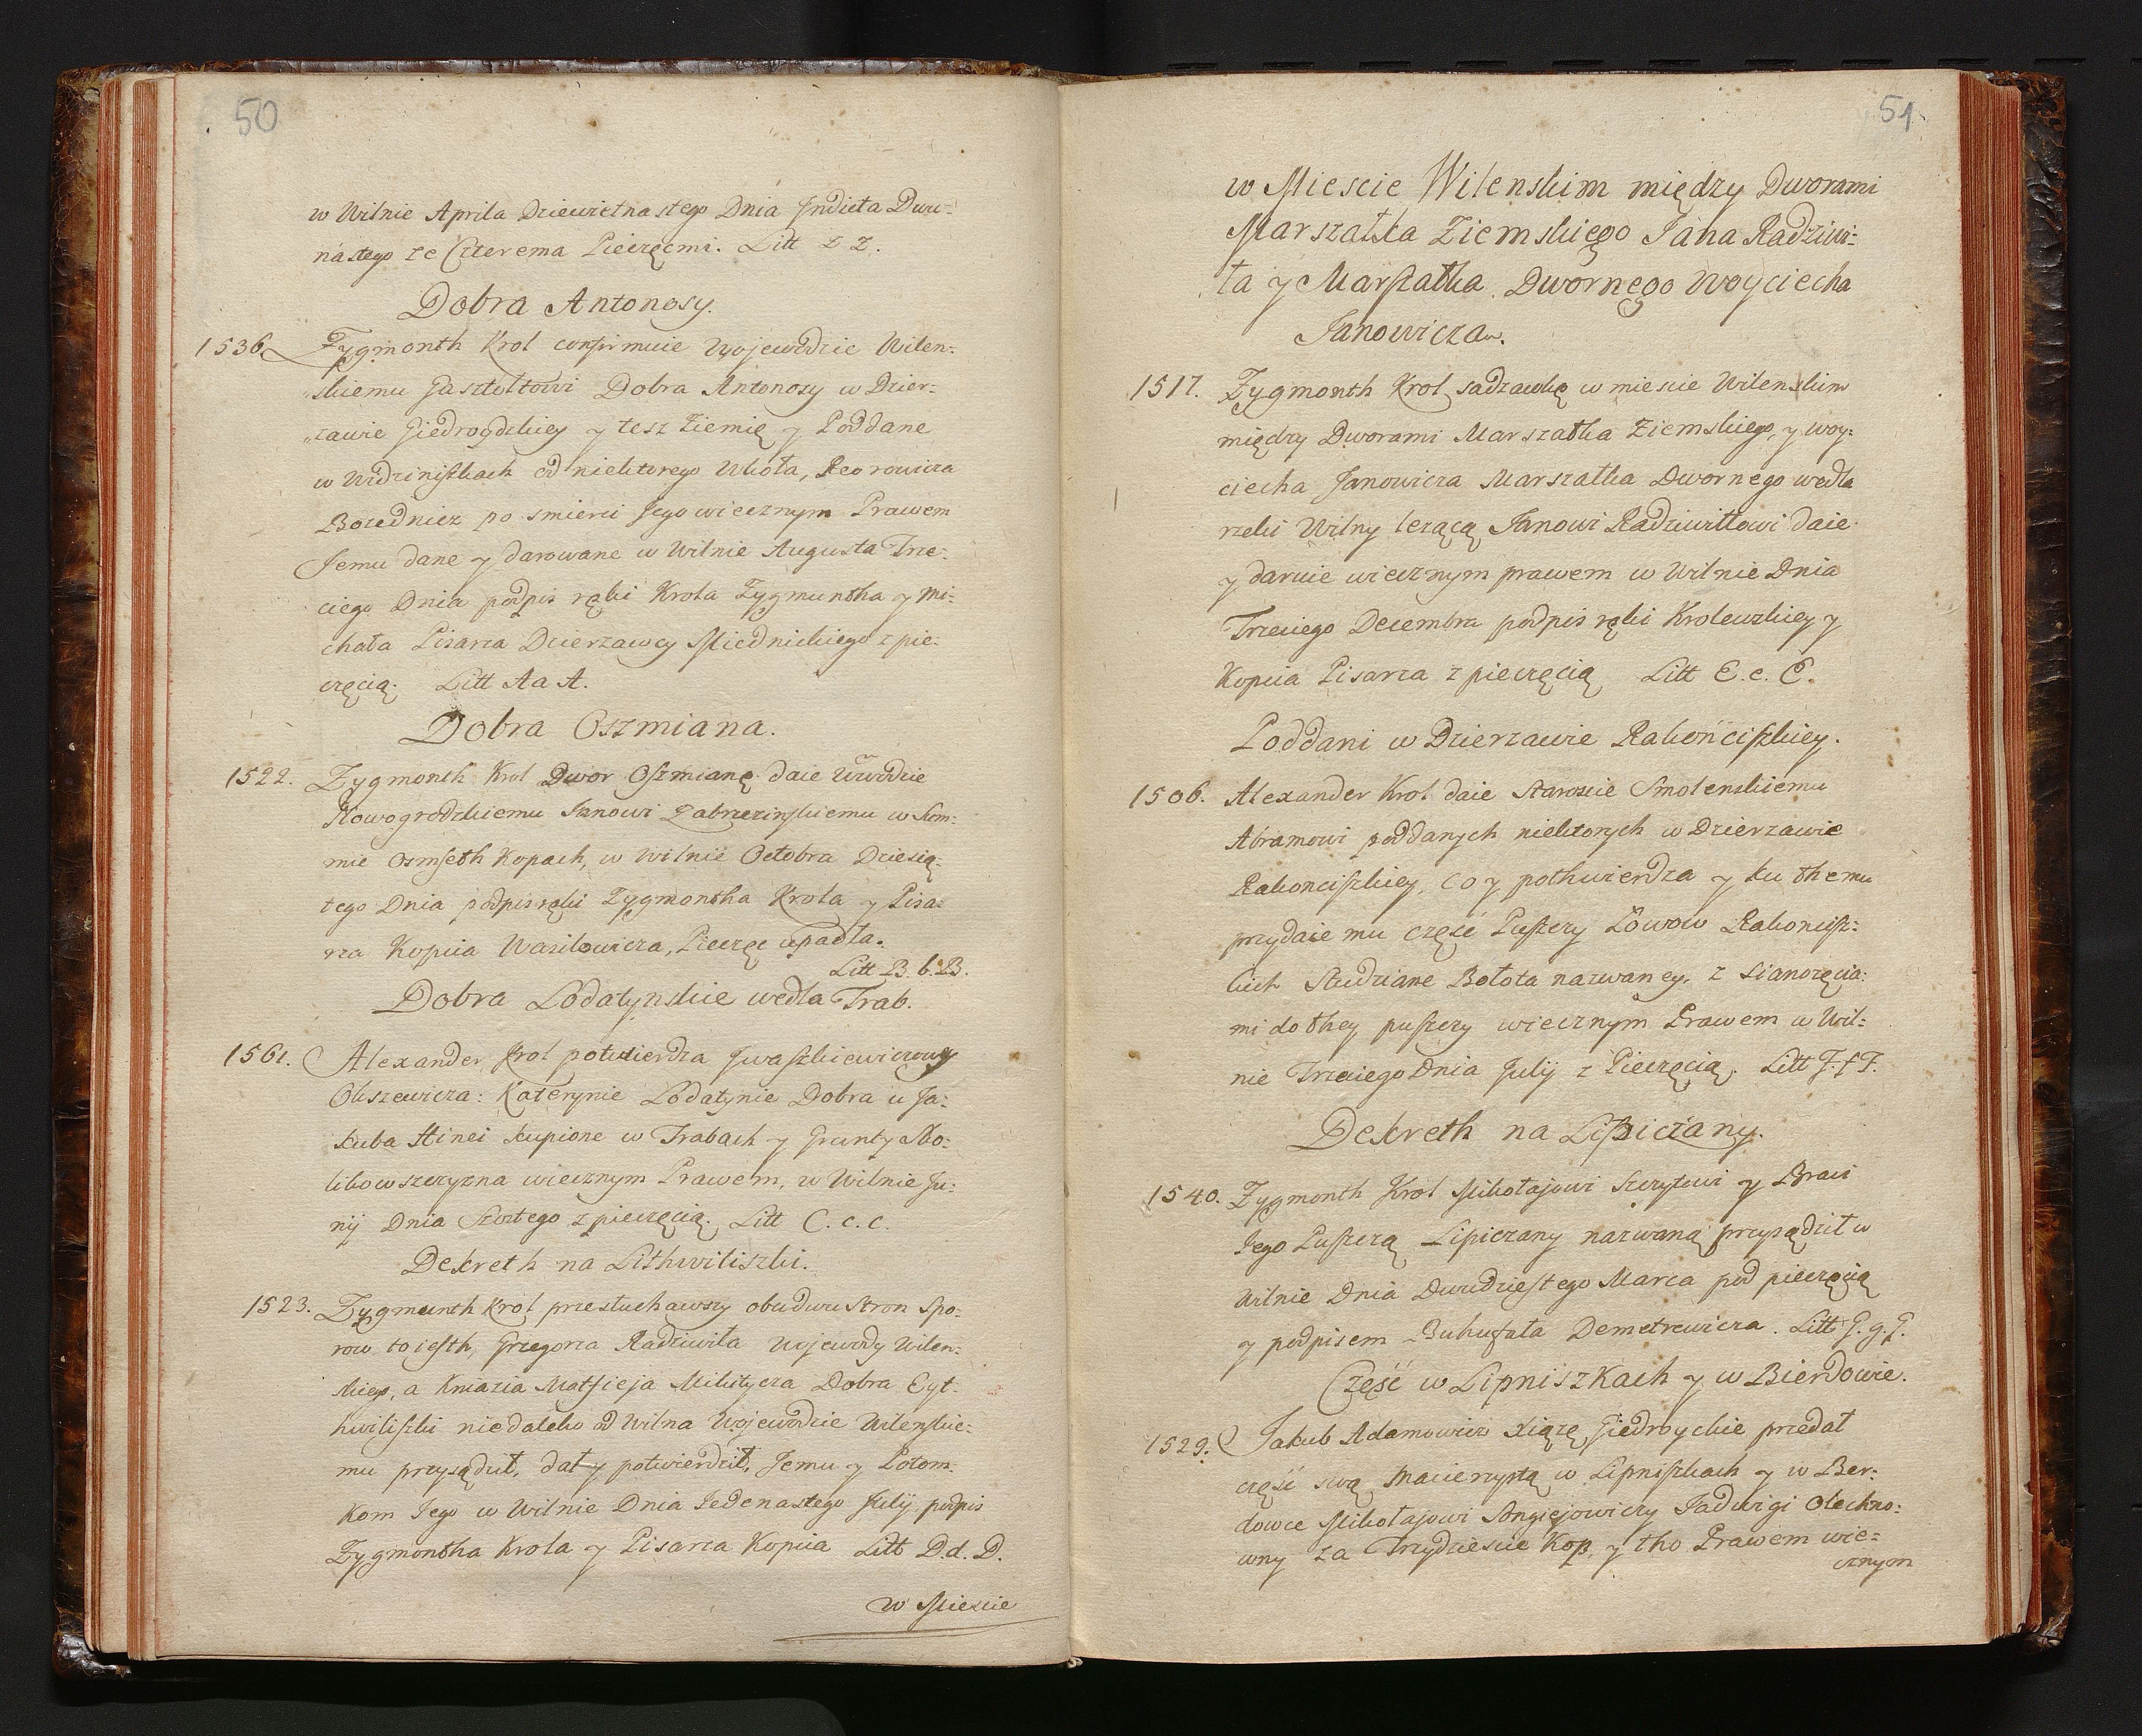 50
w Wilnie Aprila Dziewietnastego Dnia Jndicta Dwu-
nástego ze Czterema Pieczęcmi. Litt Z Z.
Dobra Antonosy.
1536. Zygmonth Krol confirmuie Wojewodzie Wilen-
skiemu Gasztołtowi Dobra Antonosy w Dzier-
zawie Giedroydzkiey y tesz Ziemię y Poddane
w Udziniszkach od niektorego Ukoła, Reorowicza
po smierci Jego wiecznym Prawem
Jemu dane y darowane w Wilnie Augusta Trze-
ciego Dnia podpis ręki Krola Zygmuntha y Mi-
chała Pisarza Dzierzawcy Miednickiego z pie-
częcią. Litt A a A.
Dobra Oszmiana.
1522. Zygmonth Krol Dwor Oszmianę daie Wwodzie
Nowogrodzkiemu Janowi Zabrzezinskiemu w Sum-
mie Osmseth Kopach, w Wilnie Octobra Dziesią-
tego Dnia podpis ręki Zygmontha Krola y Pisa-
rza Kopcia Wasilowicza, Pieczęc upadła.
Litt B. b. B.
Dobra Lodatynskie wedla Trab.
1561. Alexander Krol potwierdza Jwaszkiewiczowy
Oliszewicza: Katerynie Lodatynie Dobra u Ja-
kuba Hinci kupione w Trabach y Grunty Mo-
likowszczyzna wiecznym Prawem, w Wilnie Ju-
nij Dnia Szostego z pieczęcią. Litt C. c. C.
Dekreth na Lithwiliszki.
1523. Zygmunth Krol przesłuchawszy obudwu Stron Spo-
row, to iesth, Grzegorza Radziwiła Wojewody Wilen-
skiego, a Kniazia Matfieja Mikitycza Dobra Lyt-
hwiliszki niedaleko od Wilna Wojewodzie Wilenskie-
mu przysądził, dał y potwierdził, Jemu y Potom-
kom Jego w Wilnie Dnia Jedenastego Julij podpis
Zygmontha Krola y Pisarza Kopcia Litt D. d. D.
w Miescie
51
w Miescie Wilenskim między Dworami
Marszałka Ziemskiego Jana Radziwi-
ła y Marszałka Dwornego Woyciecha
Janowicza.
1517. Zygmonth Krol sadzawkę w miescie Wilenskim
między Dworami Marszałka Ziemskiego, y Woy-
ciecha Janowicza Marszałka Dwornego wedla
rzeki Wilny lezącą Janowi Radziwiłłowi daie
y daruie wiecznym prawem w Wilnie Dnia
Trzeciego Decembra podpis ręki Krolewskiey y
Kopcia Pisarza z pieczęcią Litt E. e. E.
Poddani w Dzierzawie Rakonciszkiey.
1506. Alexander Krol daie Staroscie Smolenskiemu
Abramowi poddanych niektorych w Dzierzawie
Rakonciszkiey, co y pothwierdza y ku themu
przydaie mu część Puszczy Łowow Rakoncisz-
kich Studziane Bołota nazwaney, z Sianozęcia-
mi do they puszczy wiecznym Prawem w Wil-
nie Trzeciego Dnia Julij z Pieczęcią. Litt F. f F.
Dekreth na Lipiczany.
1540. Zygmonth Krol Mikołajowi Sczytowi y Braci
Jego Puszczą Lipiczany nazwaną przysądził w
Wilnie Dnia Dwudziestego Marca pod pieczęcią
y podpisem Buhufała Demetrewicza. Litt G. g. G.
Część w Lipniszkach y w Bierdowie.
1529. Jakub Adamowicz Xiążę Giedroyckie przedał
część swą Macierzystą w Lipniszkach y w Ber-
dowce Mikołajowi Jadwigi Olechno-
wny za Trzydziescie Kop, y tho Prawem wie-
cznym